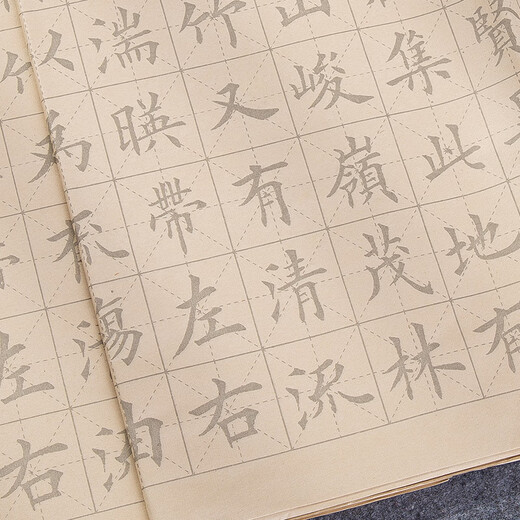 賢
集此地有
山峻嶺茂林
竹又有清流
湍暎帶左右
以為流
左右